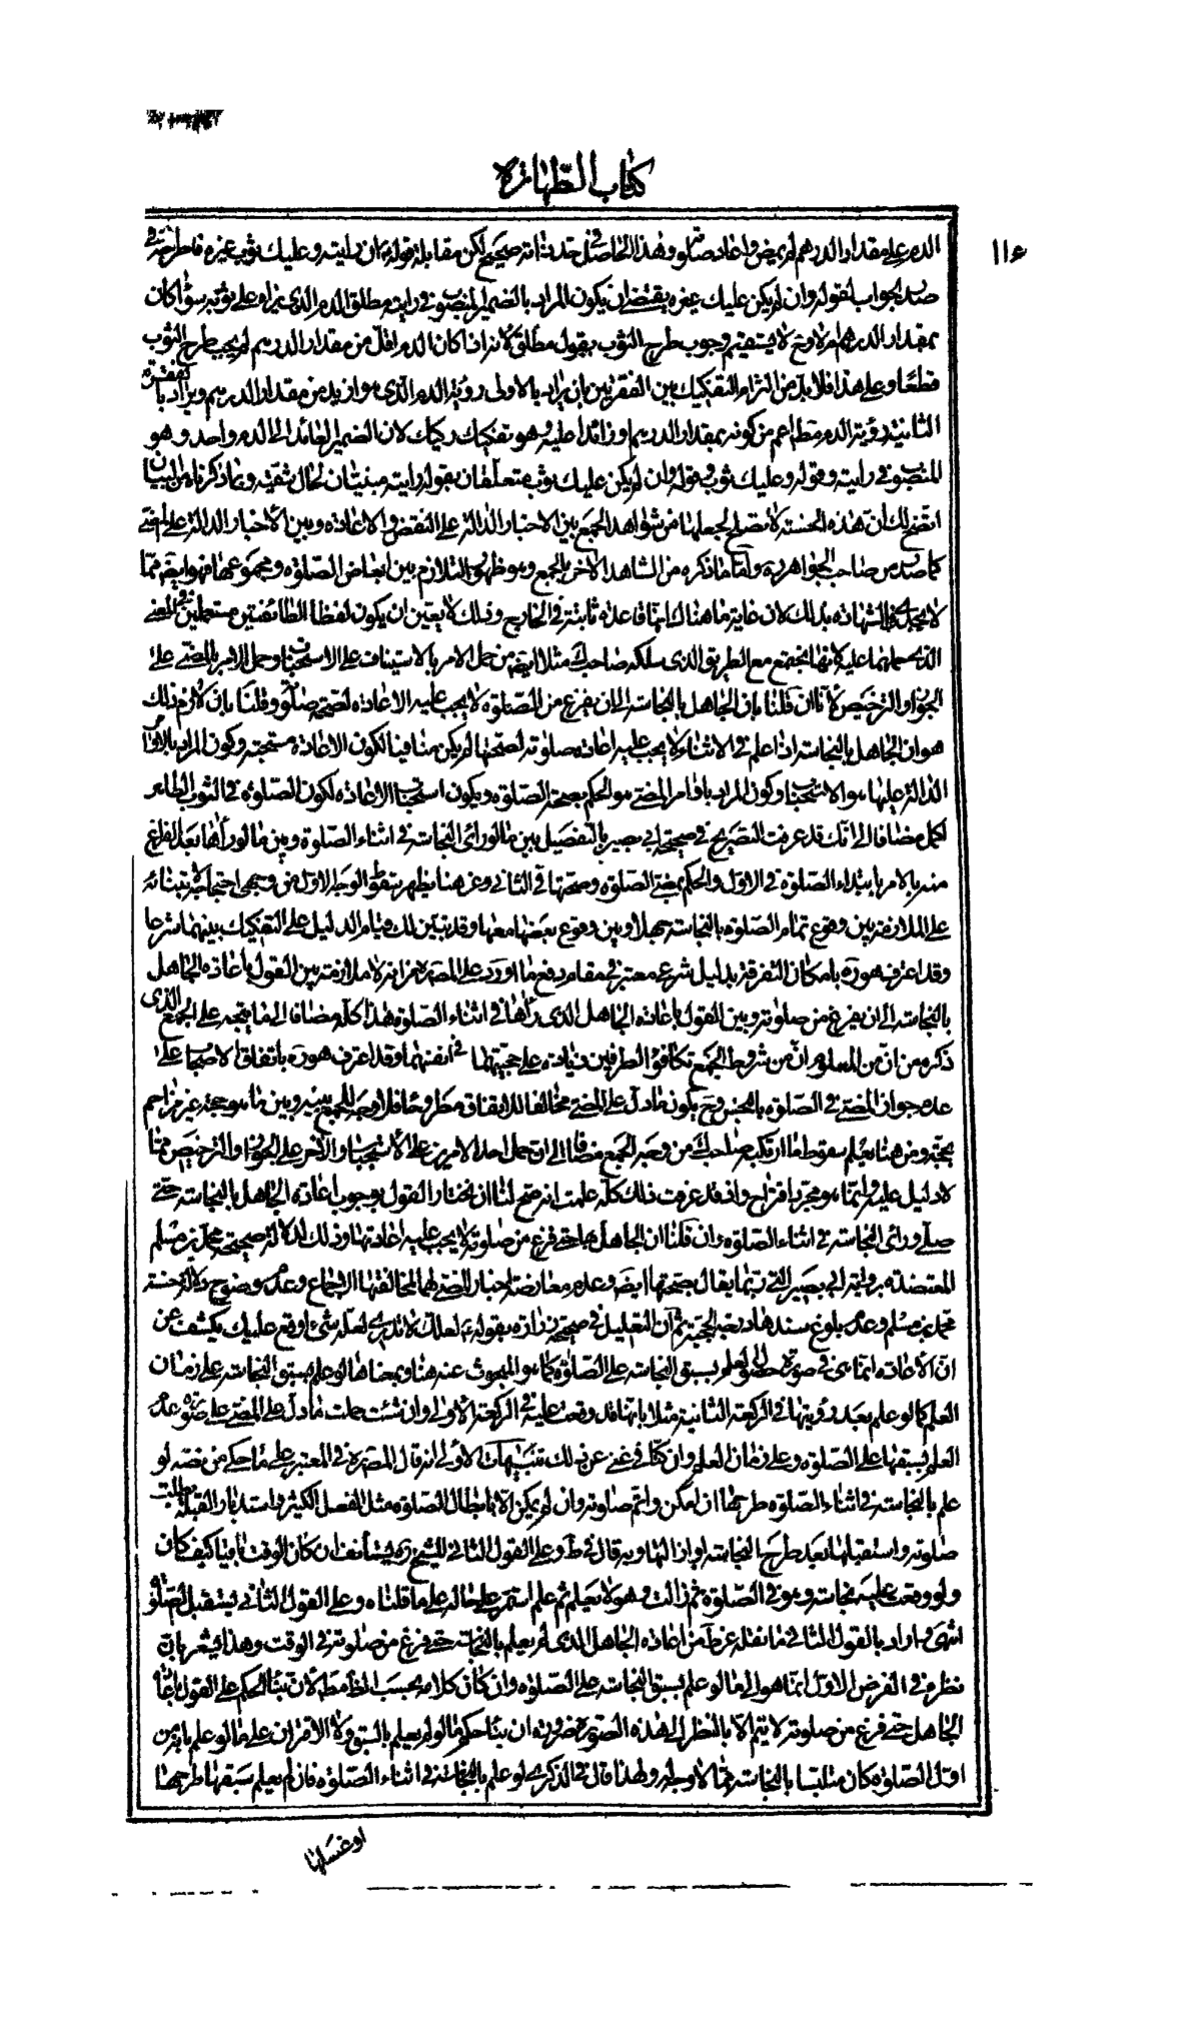 كتاب الطهارة
١١٤
الدم على مقدار الدرهم لم يمض واعاد صلوته وهذا الحاصل في حد ذاته صحيح لكن مقابلة قوله ان رايته وعليك ثوب غيره فاطرحه في
صدر الجواب لقوله وان لم يكن عليك غيره يقتضى ان يكون المراد بالضمير المنصوب في رايته مطلق الدم الذى يراه على ثوبه سواء كان
بمقدار الدرهم ام لا وح لا يستقيم وجوب طرح الثوب بقول مطلق لانه اذا كان الدم اقل من مقدار الدرهم لم يجب طرح الثوب
قطعا وعلى هذا فلا بد من التزام التفكيك بين الفقرتين بان يراد بالاولى رؤية الدم الذى هو ازيد من مقدار الدرهم ويراد بالفقرة
الثانية رؤية الدم مط اعم من كونه بمقدار الدرهم وزائدا عليه وهو تفكيك ركيك لان الضمير العائد الى الدم واحد وهو
المنصوب في رايته وقوله وعليك ثوب وقوله وان لم يكن عليك ثوب متعلقان بقوله رايته مبنيتان لحال شقيه ومما ذكرناه من البيان
اتضح لك ان هذه الحسنة لا تصلح لجعلها من شواهد الجمع بين الاخبار الدالة على النقض والاعادة وبين الاخبار الدالة على المضى
كما صدر من صاحب الجواهر ره واما ما ذكره من الشاهد الاخر للجمع وهو ظهور التلازم بين ابعاض الصلوة ومجموعها فهو ايضا مما
لا يجدى في الشهادة بذلك لان غاية ما هناك انها قاعدة ثابتة في الخارج وذلك لا يعين ان يكون لفظ الطائفتين مستعملين في المعنى
الذى حملهما عليه لانها تجتمع مع الطريق الذى سلكه صاحب ك مثلا ايضا من حمل الامر بالاستيناف على الاستحباب وحمل الامر بالمضى على
الجواز والترخيص لانا ان قلنا بان الجاهل بالنجاسة الى ان يفرغ من الصلوة لا يجب عليه الاعادة لصحة صلوته وقلنا بان لازم ذلك
هو ان الجاهل بالنجاسة اذا علم في الاثناء لا يجب عليه اعادة صلوته لصحتها لم يكن منافيا لكون الاعادة مستحبة وكون المراد بالاوامر
الدالة عليها هو الاستحباب وكون المراد باوامر المضى هو الحكم بصحة الصلوة ويكون استحباب الاعادة لكون الصلوة في الثوب الطاهر
اكمل مضافا الى انك قد عرفت التصريح في صحيحة ابى بصير بالتفصيل بين ما لو راى النجاسة في اثناء الصلوة وبين ما لو راها بعد الفراغ
منه بالامر بابتداء الصلوة في الاول والحكم بمضى الصلوة وصحتها في الثانى ومن هنا يظهر سقوط الوجه الاول من وجهى احتجاجه لابتنائه
على الملازمة بين وقوع تمام الصلوة بالنجاسة جهلا وبين وقوع بعضها معها وقد تبين لك قيام الدليل على التفكيك بينهما شرعا
وقد اعترف هو ره بامكان التفرقة بدليل شرعى معتبر في مقام دفع ما اورد على المصنف ره من انه لا ملازمة بين القول باعادة الجاهل
بالنجاسة الى ان يفرغ من صلوته وبين القول باعادة الجاهل الذى راها في اثناء الصلوة هذا كله مضافا الى ما يتجه على الجمع الذى
ذكره من ان من المعلوم ان من شروط الجمع تكافؤ الطرفين زيادة على حجيتهما في انفسهما وقد اعترف هو ره باتفاق الاصحاب على
عدم جواز المضى في الصلوة بالنجس وح يكون ما دل على المضى مخالفا للاتفاق مطروحا فلا وجه للجمع بينه وبين ما هو حجة غير مزاحم
بحجة ومن هنا يعلم سقوط ما ارتكبه صاحب ك من وجه الجمع مضافا الى ان حمل احد الامرين على الاستحباب والاخر على الجواز والترخيص مما
لا دليل عليه وانما هو مجرد اقتراح واذ قد عرفت ذلك كله علمت انه صح لنا ان نختار القول بوجوب اعادة الجاهل بالنجاسة حتى
صلى وراى النجاسة في اثناء الصلوة وان قلنا ان الجاهل بها حتى فرغ من صلوته لا يجب عليه اعادتها وذلك لدلالة صحيحتى محمد بن مسلم
المعتضدة برواية ابى بصير التى ربما يقال بصحتها ايضا وعدم معارضة اخبار المضى لهما لمخالفتها الاجماع وعدم وضوح دلالة حسنة
محمد بن مسلم وعدم بلوغ سندها درجة الحجية ثم ان التعليل في صحيحة زرارة بقوله لعلك لا تدرى لعله شىء اوقع عليك يكشف عن
ان الاعادة انما هى في صورة حصول العلم بسبق النجاسة على الصلوة كما هو المبحوث عنه هنا وبمعناها لو علم بسبق النجاسة على زمان
العلم كما لو علم بعد رؤيتها في الركعة الثانية مثلا بانها قد وقعت عليه في الركعة الاولى وان شئت حملت ما دل على المضى على صورة عدم
العلم بسبقها على الصلوة وعلى زمان العلم وان كنا في غنى عن ذلك تنبيهات الاول انه قال المصنف ره في المعتبر على ما حكى من نصه لو
علم بالنجاسة في اثناء الصلوة طرحها ان امكن واتم صلوته وان لم يكن الا بابطال الصلوة مثل الفعل الكثير واستدبار القبلة بطلت
صلوته واستقبلها بعد طرح النجاسة او ازالتها وبه قال في ط وعلى القول الثانى للشيخ ره يستأنف ان كان الوقت باقيا كيف كان
ولو وقعت عليه نجاسة وهو في الصلوة ثم زالت وهو لا يعلم ثم علم استمر على حاله على ما قلناه وعلى القول الثانى يستقبل الصلوة
انتهى واراد بالقول الثانى ما نقله عن ط من اعادة الجاهل الذى لم يعلم بالنجاسة حتى فرغ من صلوته في الوقت وهذا يشعر بان
نظره في الفرض الاول انما هو الى ما لو علم بسبق النجاسة على الصلوة وان كان كلامه بحسب اللفظ مط لان بناء الحكم على القول باعادة
الجاهل حتى فرغ من صلوته لا يتم الا بالنظر الى هذه الصورة ضرورة ان بناء حكم ما لو لم يعلم بالسبق ولا الاقتران على ما لو علم بانه من
اول الصلوة كان متلبسا بالنجاسة مما لا وجه له ولهذا قال في الذكرى لو علم بالنجاسة في اثناء الصلوة فان لم يعلم سبقها طرحها
او غسلها